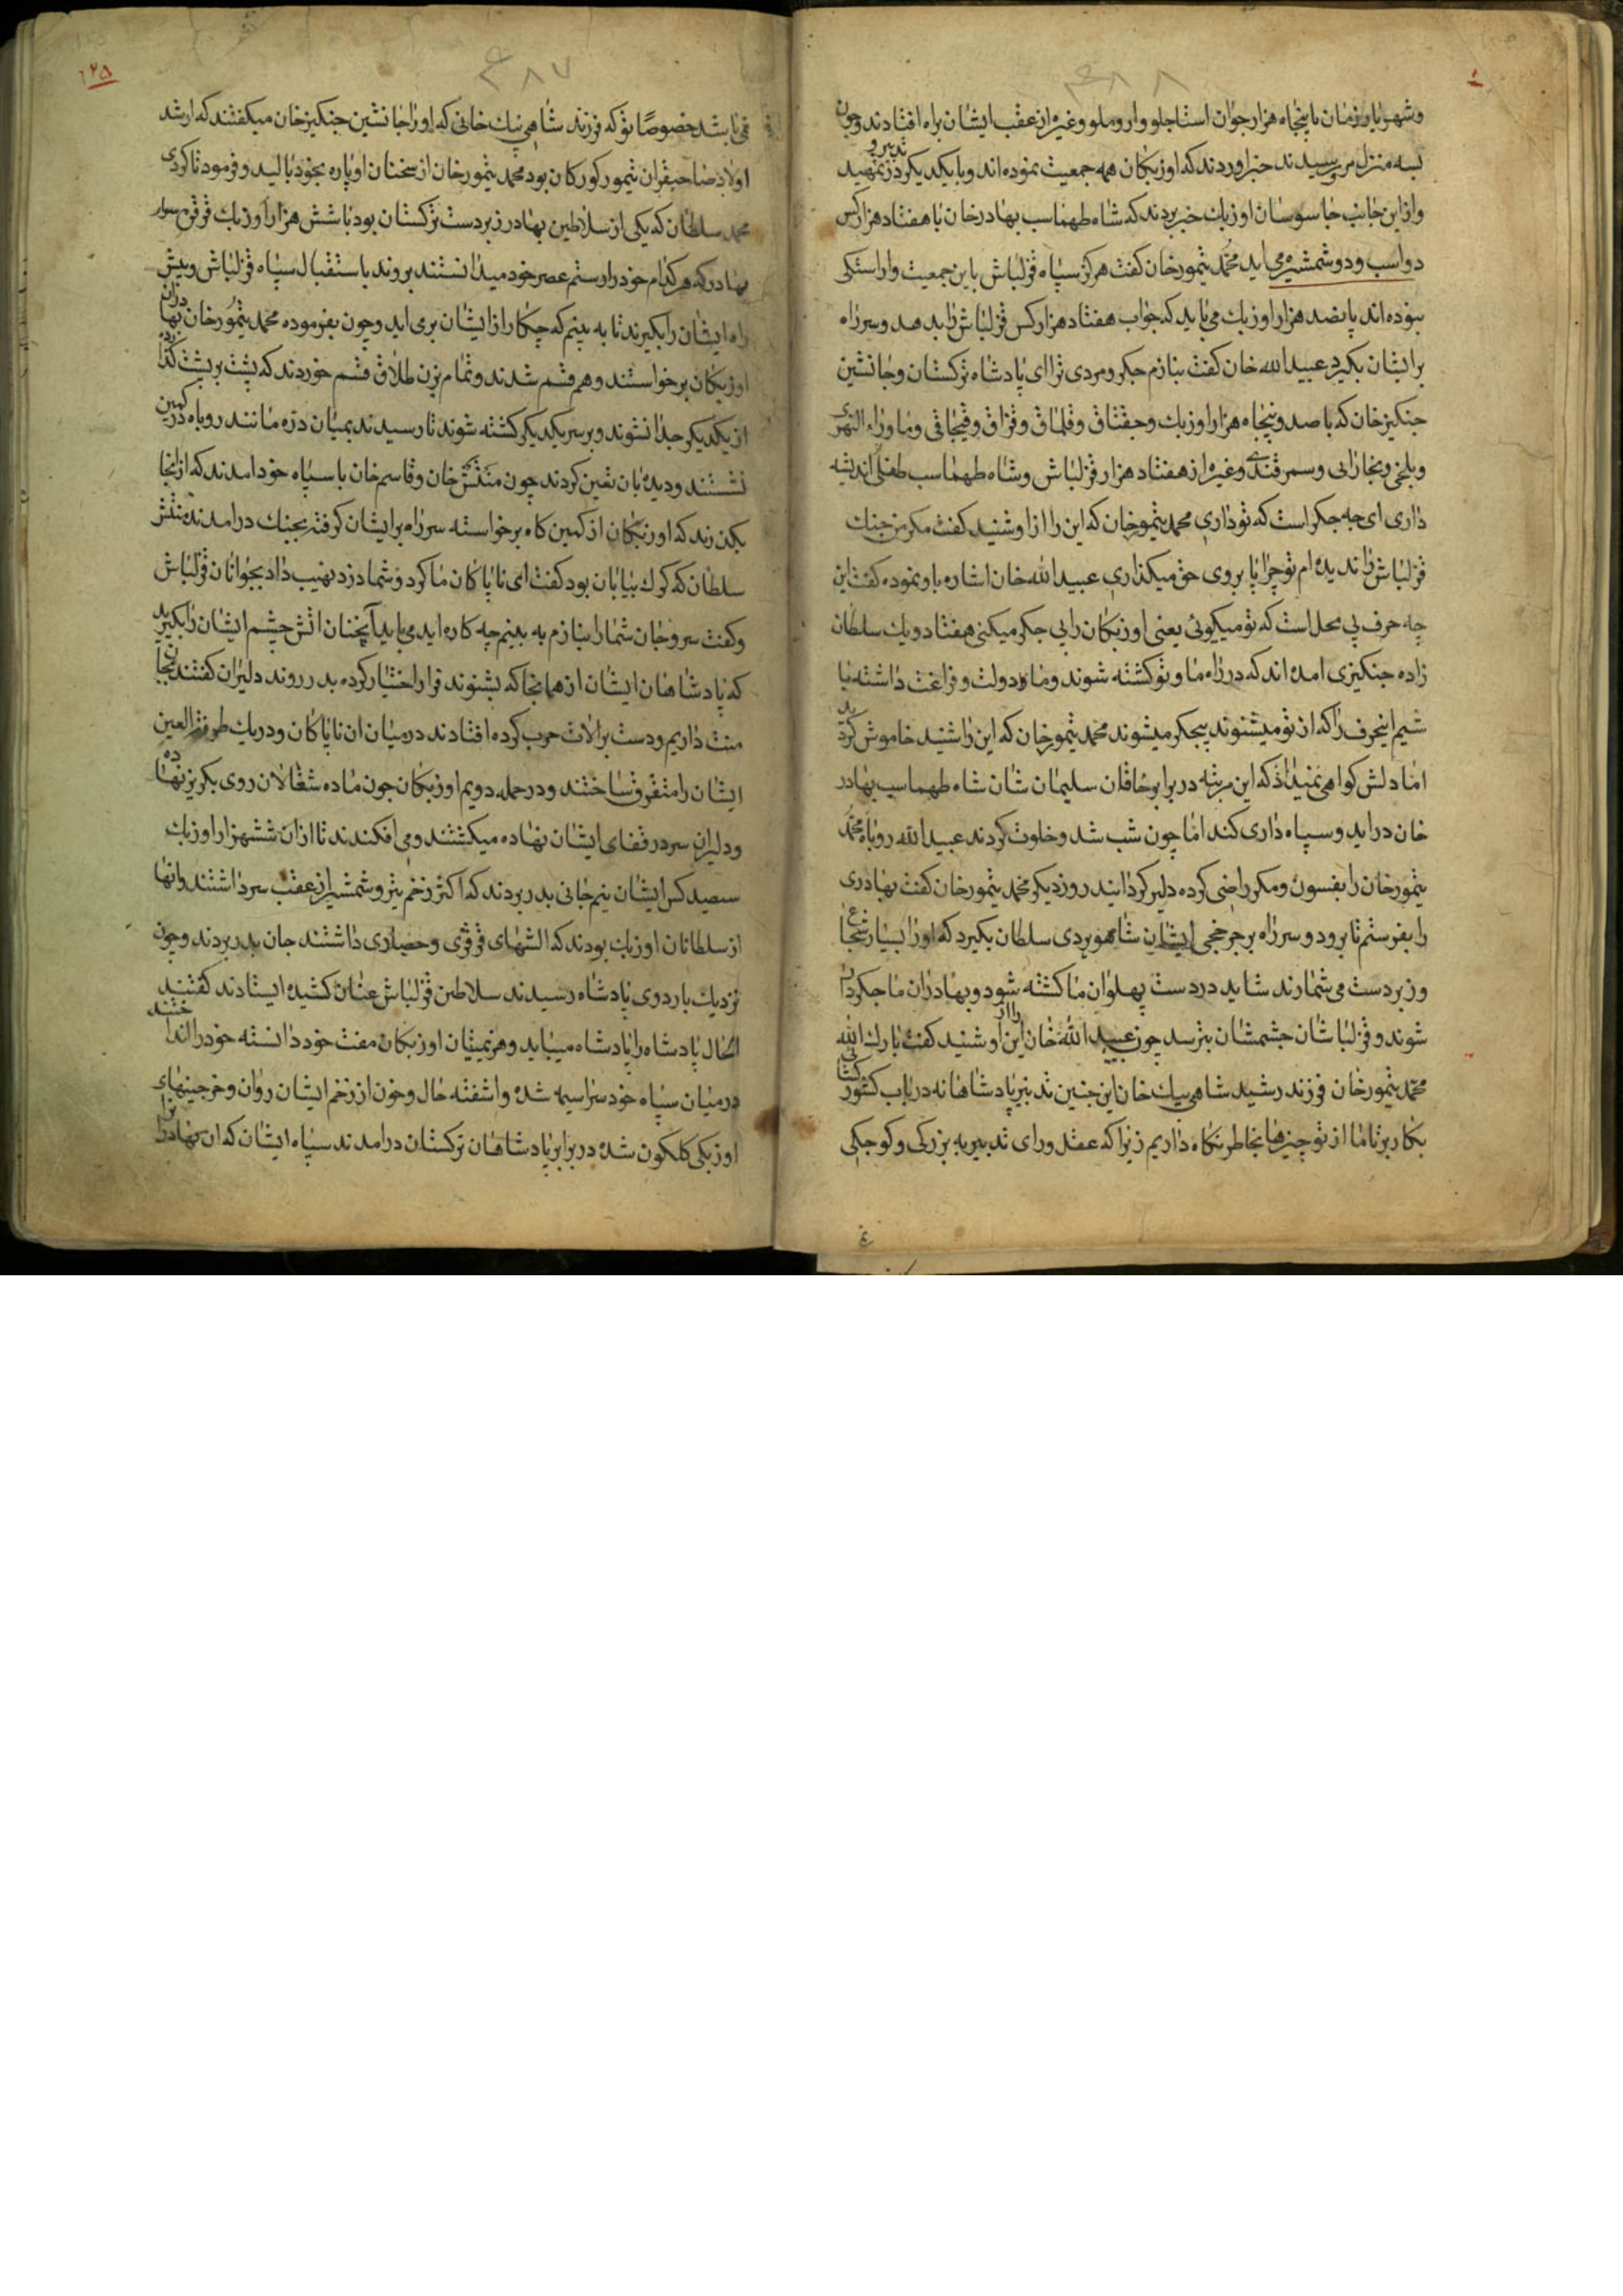 وشهریار زمان با پنجاه هزار جوان استاجلو وارو ملو وغیره از عقب ایشان براه افتادند وچون
بسه منزل مرو رسیدند خبر اوردند که اوزبکان همه جمعیت نموده اند وبا یکدیکر در تمهید تدبیر و
وازاین جانب جاسوسان اوزبك خبر بردند که شاه طهماسب بهادر خان با هفتاد هزار کس
دواسب ودوشمشیره می اید محمد تیمور خان کفت هرکز سپاه قزلباش باین جمعیت واراستکی
نبوده اند پانصد هزار اوزبك می باید که جواب هفتاد هزار کس قزلباش را بدهد وسر راه
بر ایشان بکیرد عبید الله خان کفت بنازم جکر ومردی ترا ای پادشاه ترکستان وجانشین
جنکیز خان که با صد وپنجاه هزار اوزبك وجقتاق وقلماق وقزاق وقبچاقی وما وراء النهری
وبلخی وبخارائی وسمرقندی وغیره از هفتاد هزار قزلباش وشاه طهماسب طفلی اندیشه
داری ای چه جکر است که تو داری محمد تیمور خان که این را از او شنید کفت مکر من جنك
قزلباش را ندیده ام تو چرا پا بروی حق میکذاری عبید الله خان اشاره باو نموده کفت این
چه حرف بی محل است که تو میکوئی یعنی اوزبکان را بی جکر میکنی هفتاد ویك سلطان
زاده جنکیزی امده اند که در راه ما وتو کشته شوند وما دولت وفراغت داشته با
شیم اینحرف را که از تو میشنوند بیجکر میشوند محمد تیمور خان که این را شنید خاموش کردید
اما دلش کواهی نمیداد که این مرتبه در برابر خاقان سلیمان شان شاه طهماسب بهادر
خان در اید وسپاه داری کند اما چون شب شد وخلوت کردند عبید الله روباه محمد
تیمور خان را بفسون ومکر راضی کرده دلیر کردانید روز دیکر محمد تیمور خان کفت بهادری
را بفرستم تا برود وسر راه بر چرخجی ایشان شاهویردی سلطان بکیرد که او را بسیار شجاع
وزبردست می شمارند شاید در دست پهلوان ما کشته شود وبهادران ما جکردار
شوند وقزلباشان چشمشان بترسد چون عبید الله خان این را از او شنید کفت بارك الله
محمد تیمور خان فرزند رشید شاهی بیك خان این چنین تدبیر پادشاهانه در باب کشور کشائی
بکار بر تا ما از تو چیزها بخاطر نکاه داریم زیرا که عقل ورای تدبیر به بزرکی وکوچکی
باشد خصوصا تو که فرزند شاهی بیك خانی که او را جانشین جنکیز خان میکفتند که ارشد
اولاد صاحبقران تیمور کورکان بود محمد تیمور خان از سخنان او پاره بخود بالید وفرمود تا
محمد سلطان که یکی از سلاطین بهادر زبردست ترکستان بود با شش هزار اوزبك سوار
بهادر که هر کدام خود را رستم عصر خود میدانستند بروند باستقبال سپاه قزلباش وپیش
راه ایشان را بکیرند تا به بینم که چکار از ایشان بر می اید وچون بفرموده محمد تیمور خان بهادران
اوزبکان برخواستند وهم قسم شدند وتمام بزن طلاق قسم خوردند که پشت بر پشت
از یکدیکر جدا نشوند وبر سر یکدیکر کشته شوند تا رسیدند بمیان دره مانند روباه در کمین
نشستند ودیده بان تعین کردند چون منتش خان وقاسم خان با سپاه خود امدند که از انجا
بکذرند که اوزبکان از کمین کاه برخواسته سر راه بر ایشان کرفته بجنك در امدند منتش
سلطان که کرك بیابان بود کفت ای ناپاکان ما کرد وشما دزد نهیب داد بجوانان قزلباش
وکفت سر وجان شما را بنازم به بینم چه کاره اید می باید آنچنان اتش چشم ایشان را بکیرید
که پادشاهان ایشان از همانجا که بشنوند فرار اختیار کرده بدر روند دلیران کفتند بجان
منت داریم ودست بر الات حرب کرده افتادند در میان ان ناپاکان ودر یك طرفة العین
ایشان را متفرق ساختند ودر حمله دویم اوزبکان چون ماده شغالان روی بکریز نهاده
ودلیران سر در قفای ایشان نهاده میکشتند ومی افکندند تا از ان ششهزار اوزبك
سیصد کس ایشان نیم جانی بدر بردند که اکثر زخم تیر وشمشیر از عقب سر داشتند وانها
از سلطانان اوزبك بودند که الشهای قرقری وحصاری داشتند جان بدر بردند وچون
نزدیك باردوی پادشاه رسیدند سلاطین قزلباش عنان کشیده ایستادند کفتند
الحال پادشاه را پادشاه میباید وهزیمتیان اوزبکان مفت خود دانسته خود را انداختند
در میان سپاه خود سراسیمه شده واشفته حال وخون از زخم ایشان روان وخرجینهای
اوزبکی کلکون شده در برابر پادشاهان ترکستان در امدند سپاه ایشان که ان بهادران را